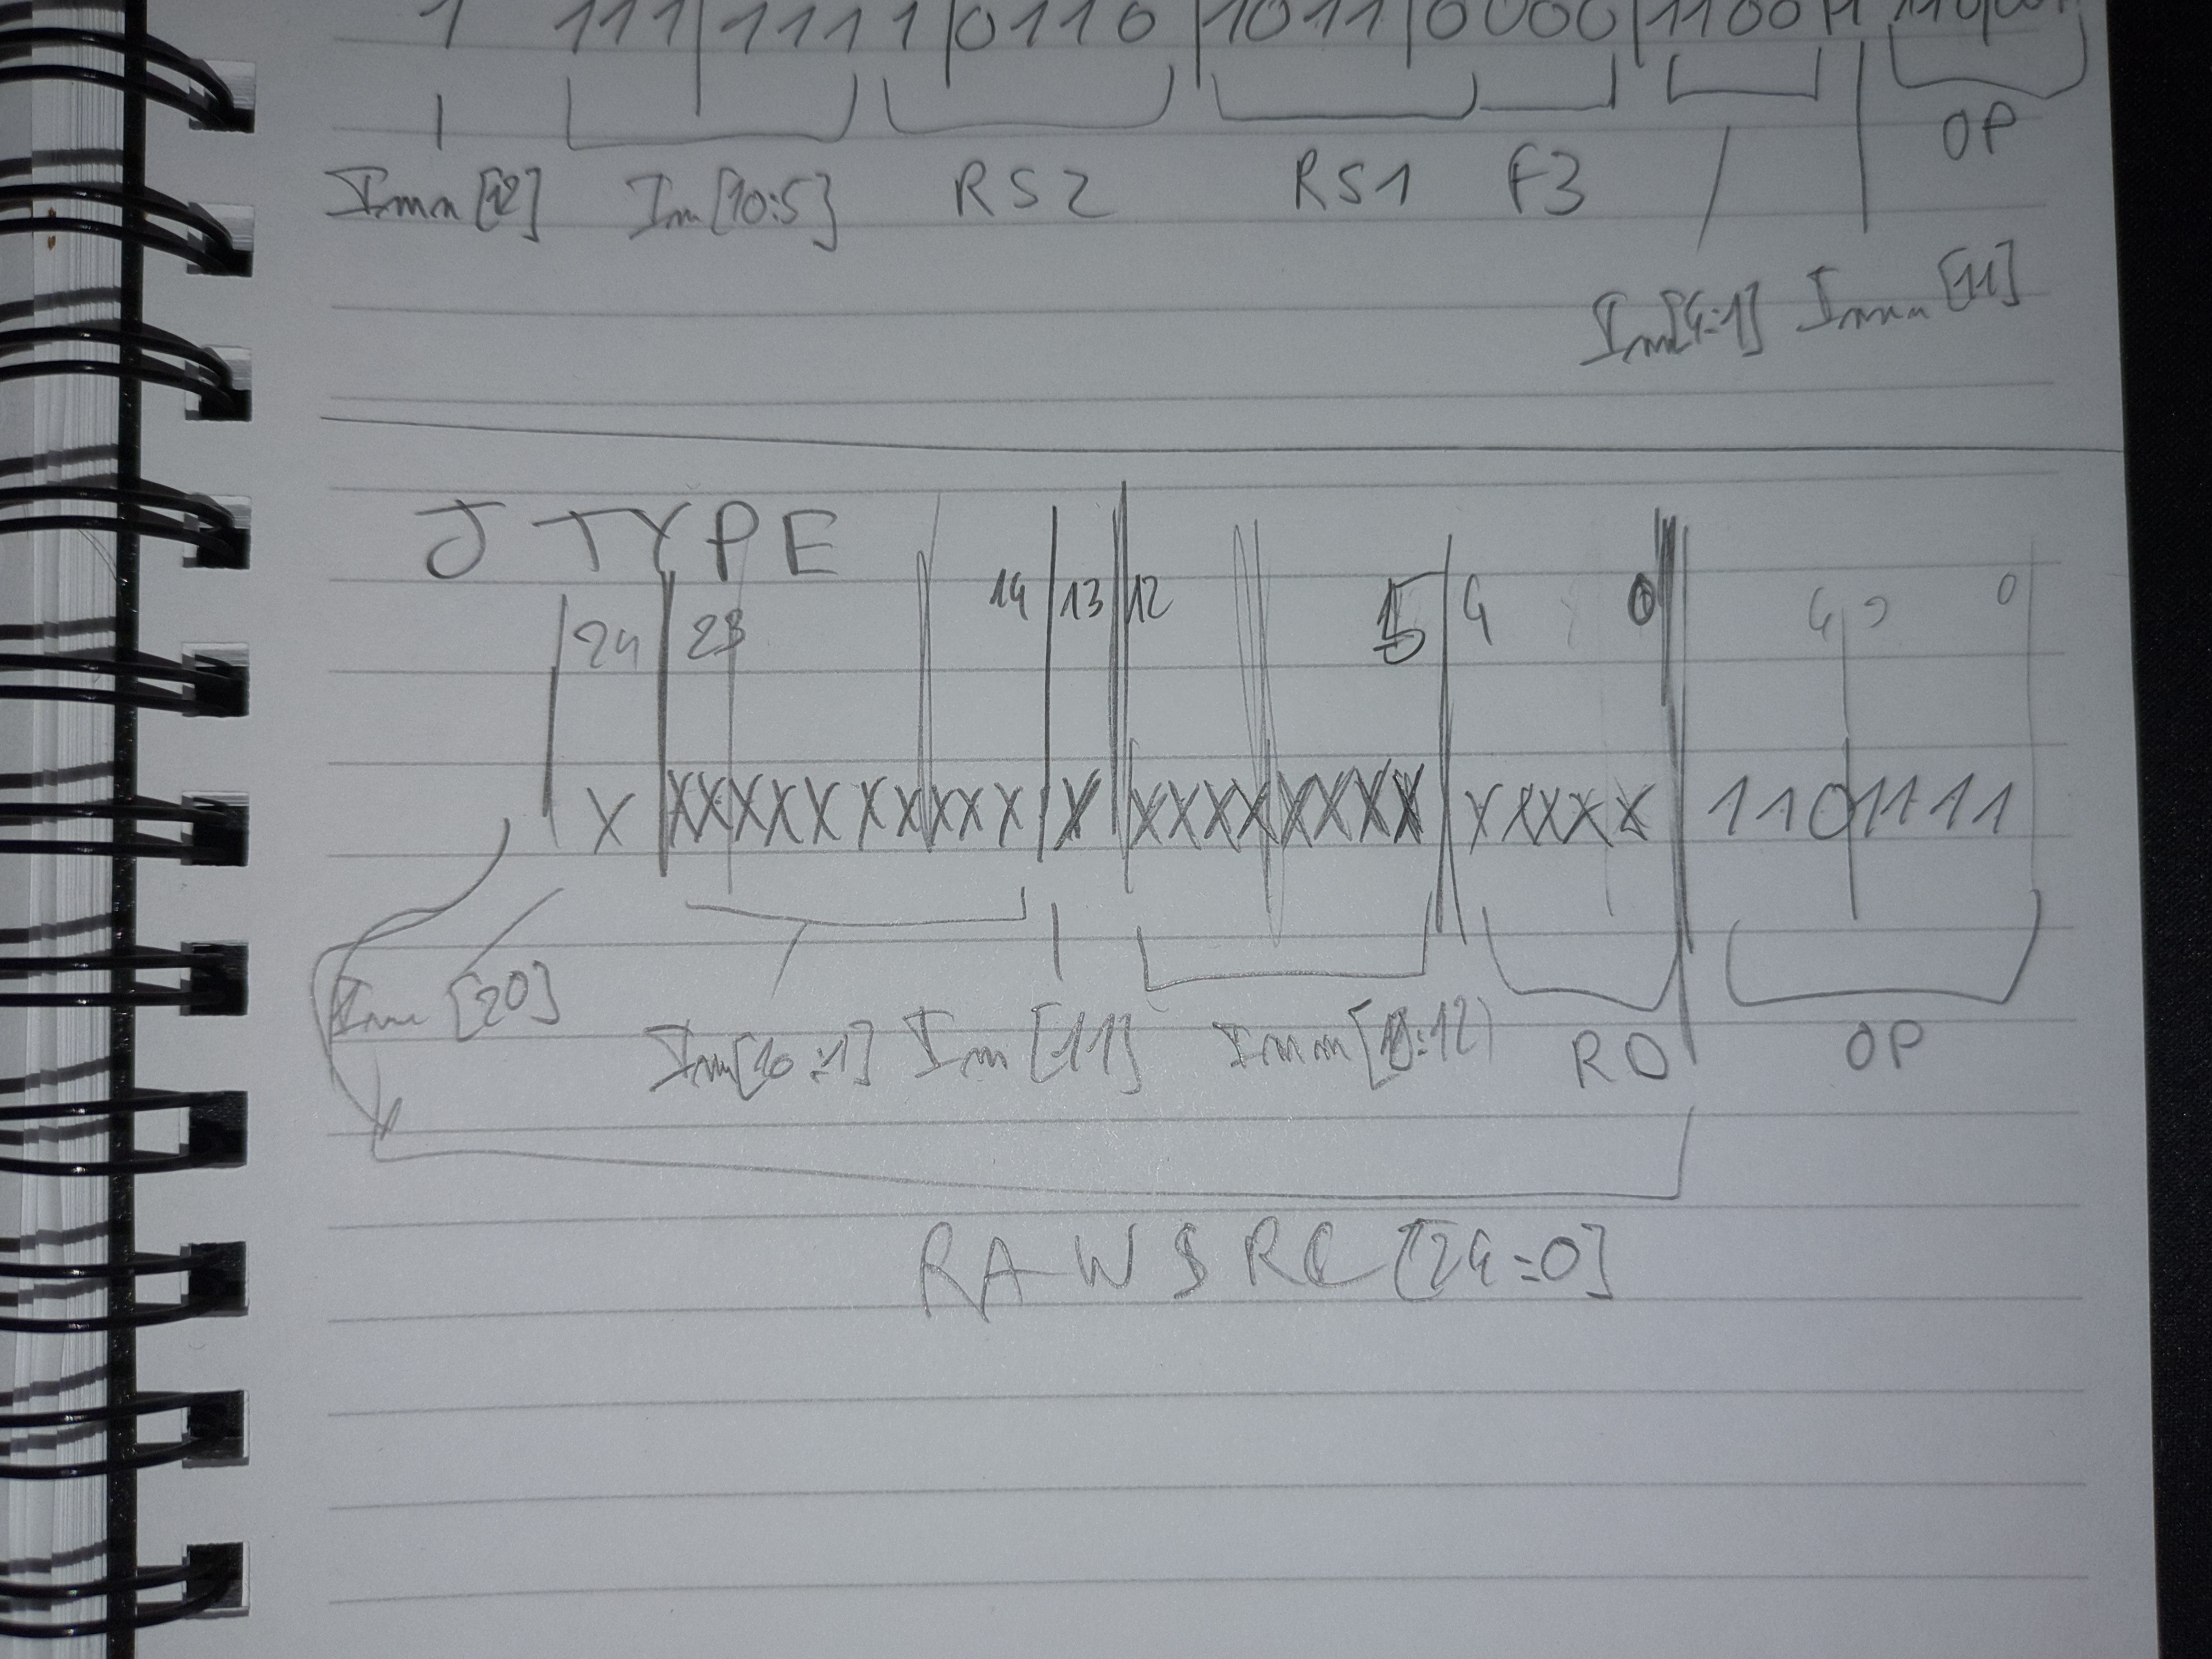 1 111|1111 1|0110 |1011|0000|1100
Imm[12] Im[10:5] RS2 RS1 F3 OP
Im[4:1] Imm[11]
J TYPE
24 23 14 13 12 5 4 0 0
X XXXXXXXXXX X XXXXXXXX XXXXX 1101111
Imm [20] Im[10:1] Im [11] Imm[:12] RD OP
RAWSRC[24:0]